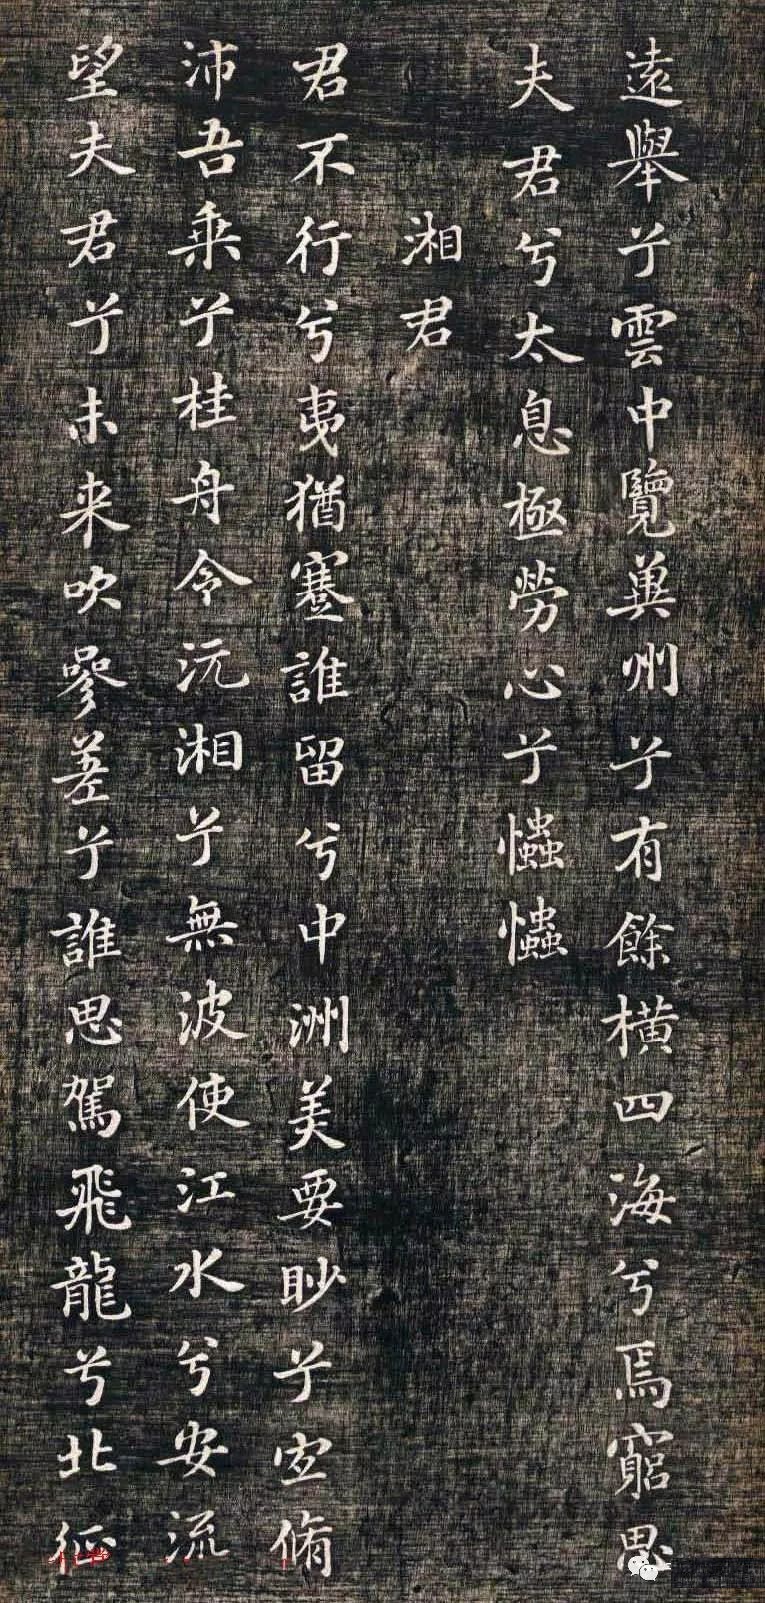 遠舉兮雲中覽冀州兮有餘橫四海兮焉窮思
夫君兮太息極勞心兮忡忡
湘君
君不行兮夷猶蹇誰留兮中洲美要眇兮宜脩
沛吾乘兮桂舟令沅湘兮無波使江水兮安流
望夫君兮未来吹參差兮誰思駕飛龍兮北征